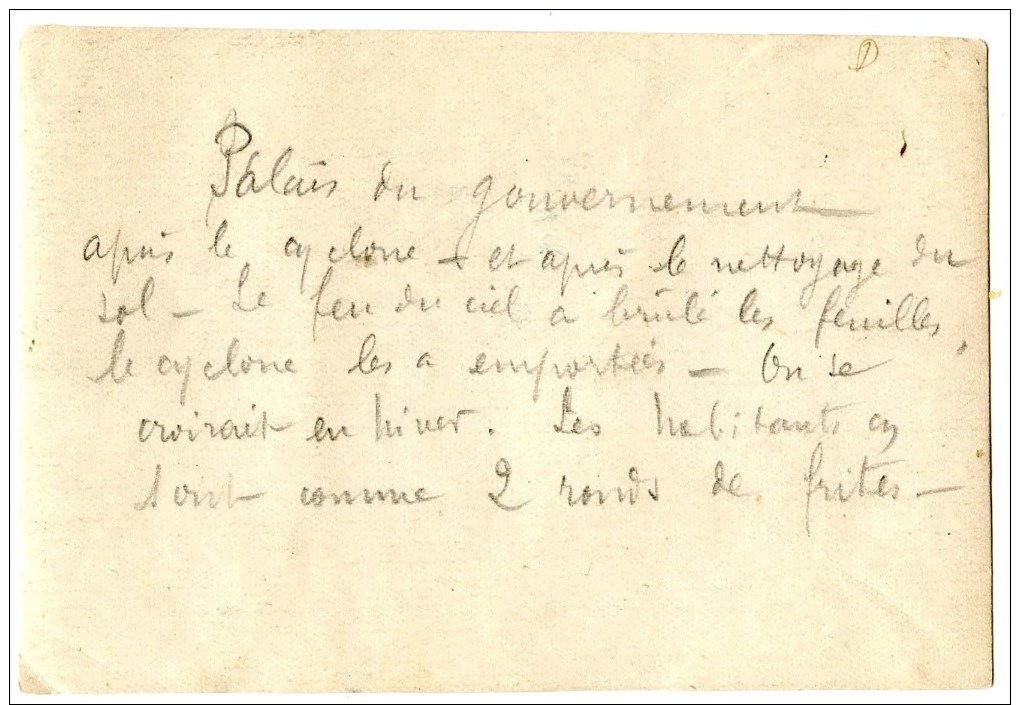 D
Palais du gouvernement
après le cyclone - et après le nettoyage du
sol - Le feu du ciel a brûlé les feuilles,
le cyclone les a emportées - On se
croirait en hiver. Les habitants en
sont comme 2 ronds de frites -